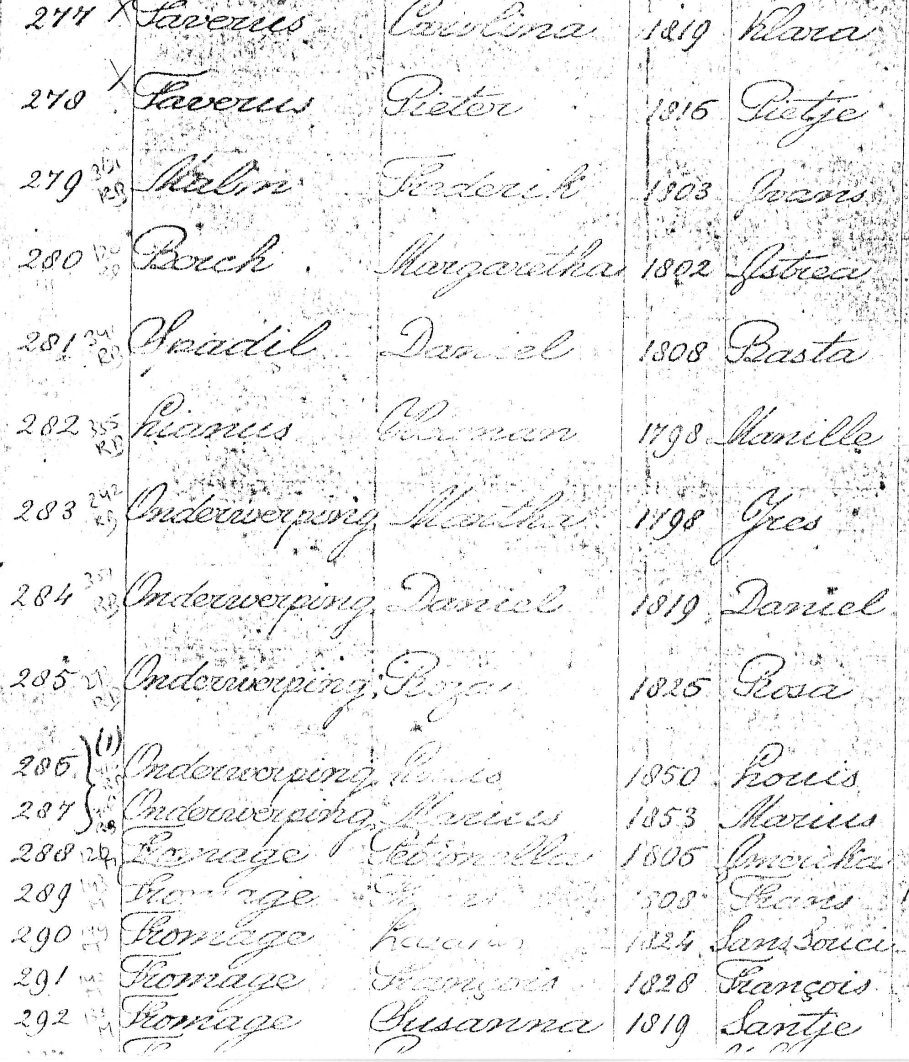 277 X Saverus Carolina 1819 Klara
278 X Saverus Pieter 1816 Pietje
279 351 RB Malin Frederik 1803 Jvans
280 Borch Margaretha 1802 Astrea
281 341 RB Spadil Daniel 1808 Basta
282 355 RB Lianus Herman 1798 Manille
283 242 RB Onderwerping Martha 1798 Gres
284 351 RB Onderwerping Daniel 1819 Daniel
285 RB Onderwerping Roza 1825 Rosa
(1)
286 Onderwerping Louis 1850 Louis
287 Onderwerping Marius 1853 Marius
288 Fromage Petronella 1805 Amerika
289 Fromage 1808 Frans
290 Fromage 1824 Sans Souci
291 Fromage François 1828 François
292 Fromage Susanna 1819 Santje